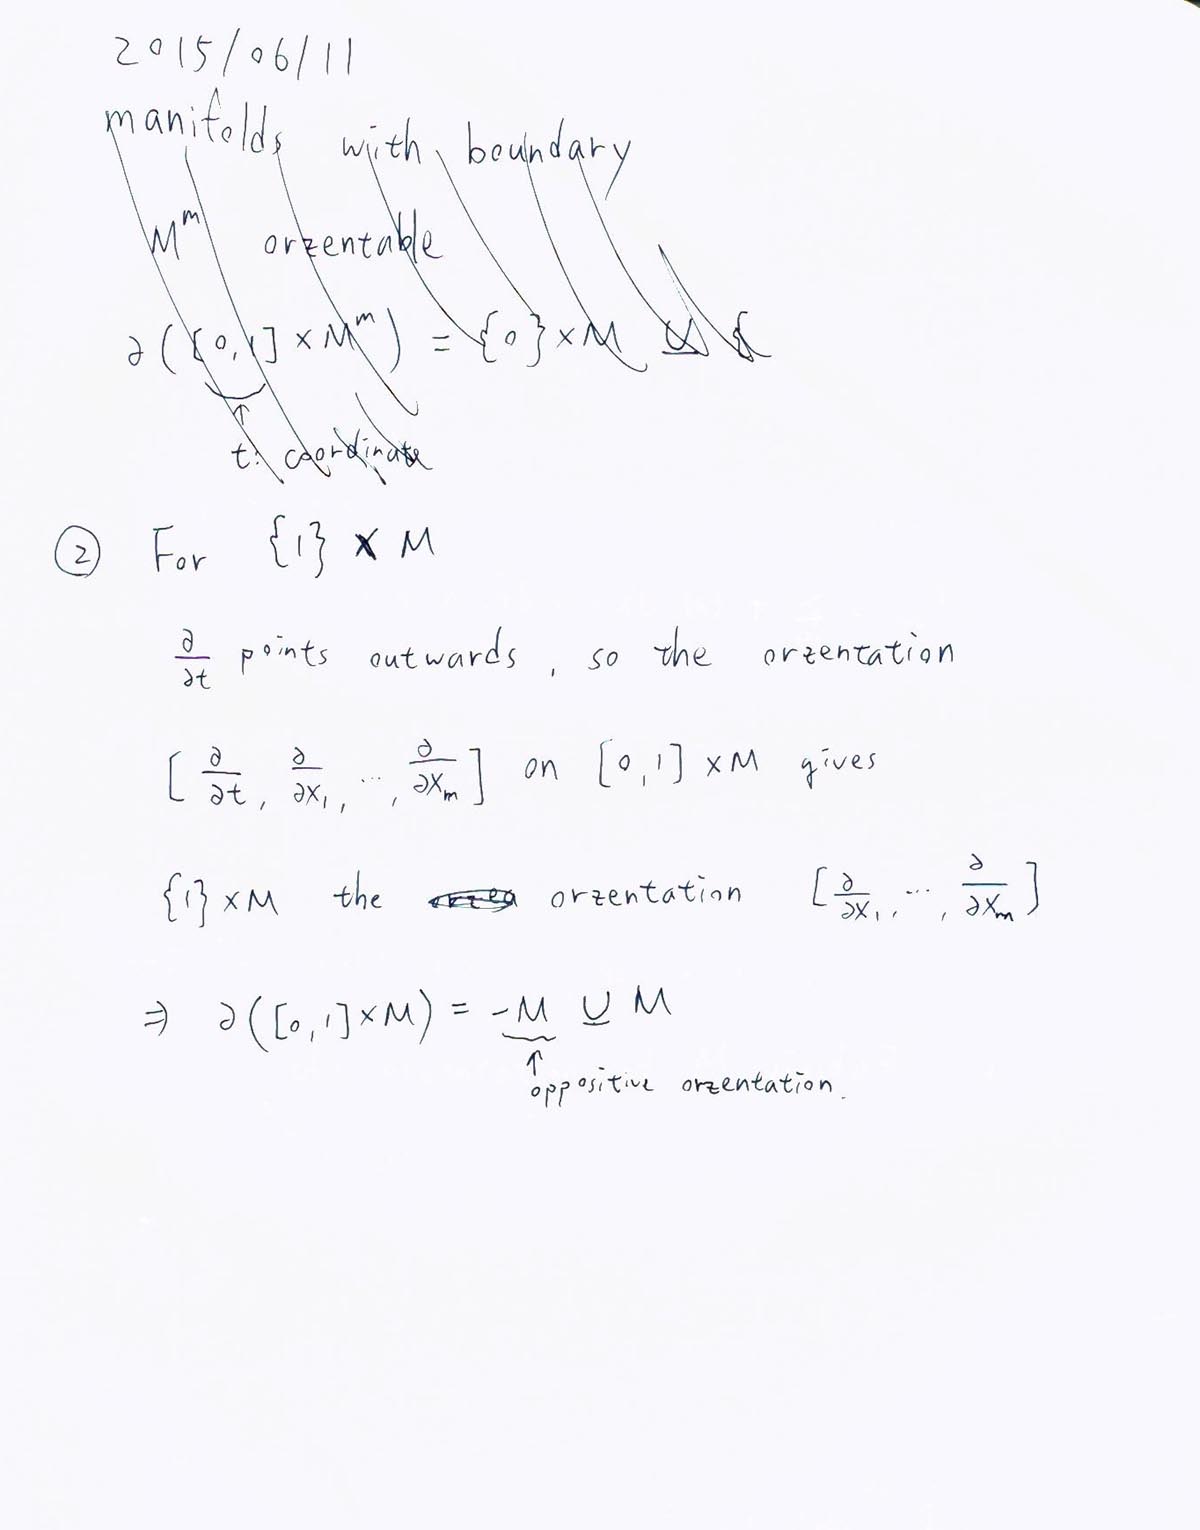 2015/06/11
manifolds with boundary
Mᵐ orzentable
∂([0,1] × Mᵐ) = {0} × M ⊍ {
↑
t: coordinate
② For {1} × M
∂/∂t points outwards, so the orzentation
[∂/∂t, ∂/∂x₁, ..., ∂/∂xₘ] on [0,1] × M gives
{1} × M the orzentation [∂/∂x₁, ..., ∂/∂xₘ]
⇒ ∂([0,1] × M) = -M ⊍ M
↑
oppositive orzentation.